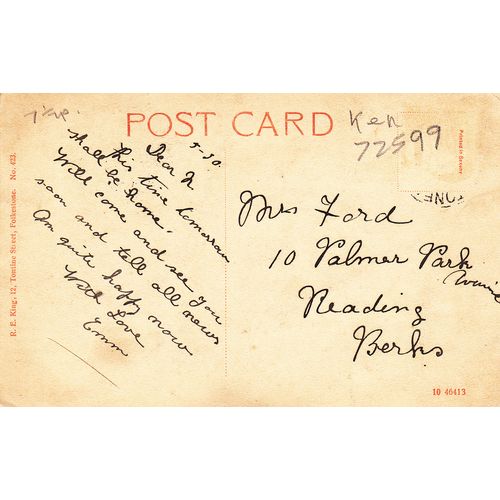 POST CARD
Ken
72599
5-30.
Dear N
this time tomorrow
shall be home.
Will come and see you
soon and tell all news
Am quite happy now
With Love
Emm
Mrs Ford
10 Palmer Park
Reading
Berks
R. E. King, 12, Tontine Street, Folkestone. No. 423.
Printed in Saxony
10 46413